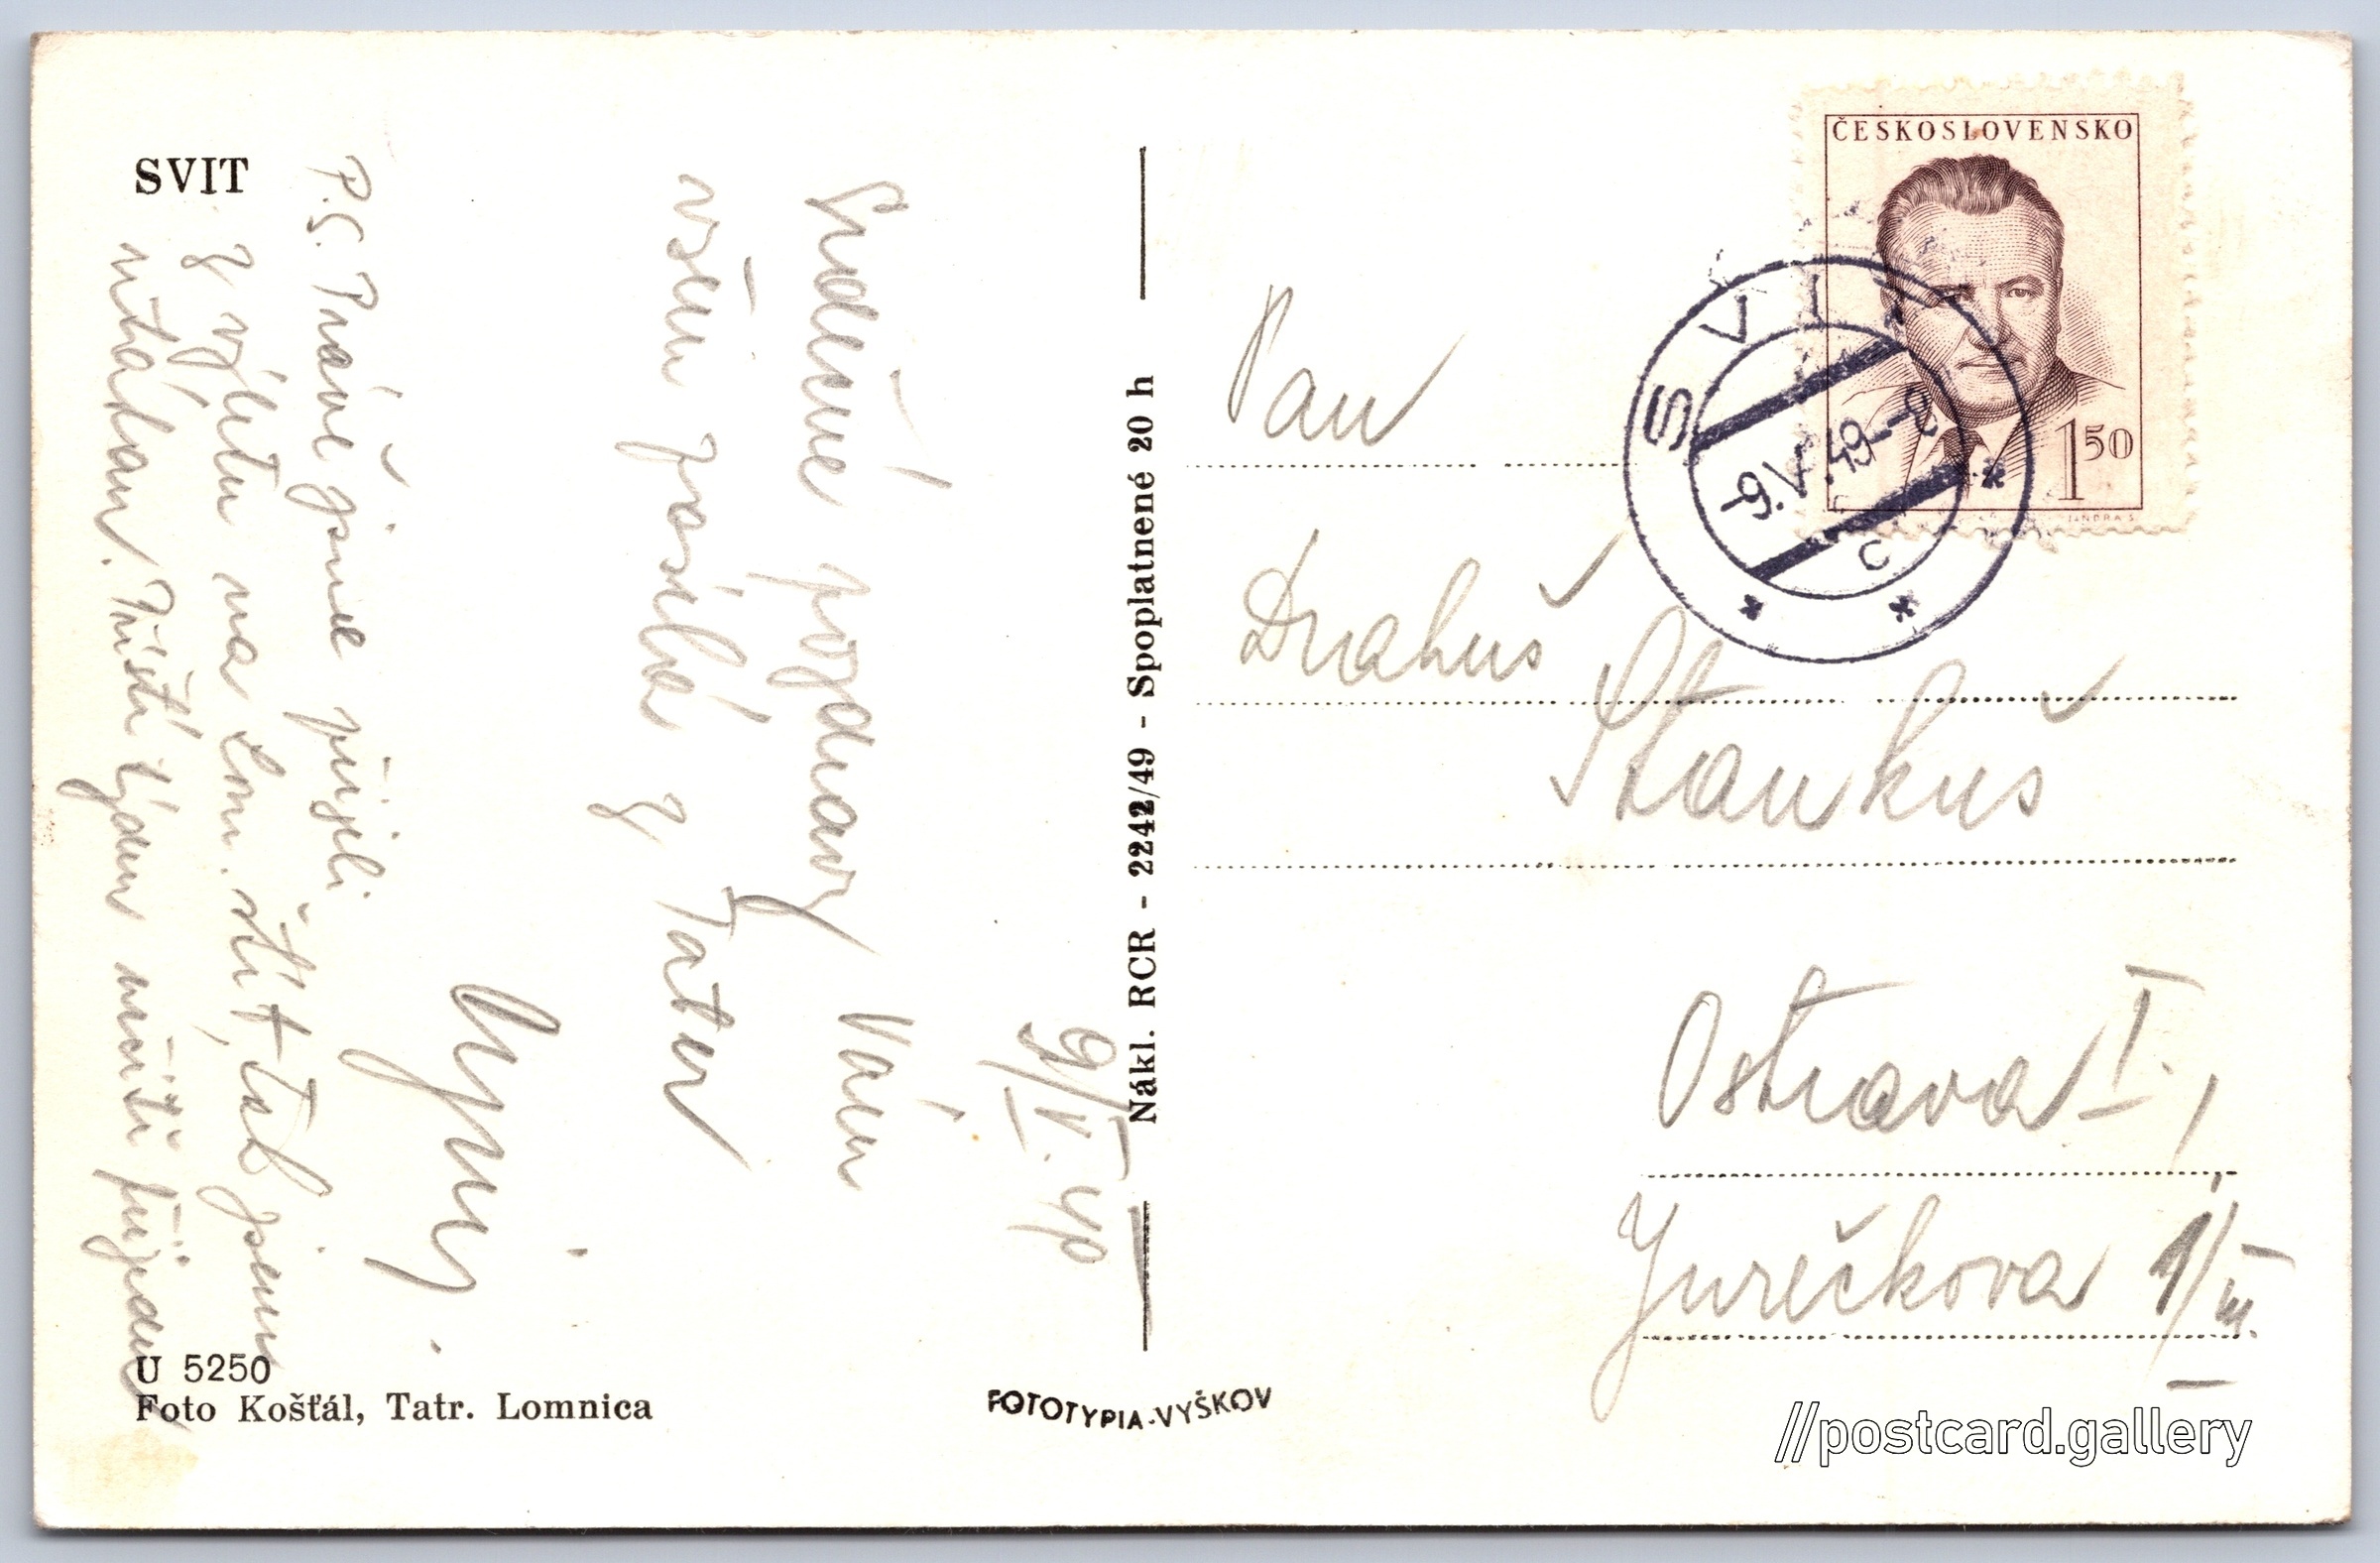 SVIT
9/V. 49
Srdečné pozdravy Vám
všem posílá z Tater
P.S. Právě jsme přijeli
z výletu na Lom. štít, tak jsem
unaven. Příští týden přijedu
U 5250
Foto Košťál, Tatr. Lomnica
Nákl. RCR - 2242/49 - Spoplatnené 20 h
FOTOTYPIA-VYŠKOV
ČESKOSLOVENSKO
1 50
JINDRA S
SVIT
-9.V.49.-8
C
Pan
Drahuš
Staňkuš
Ostrava I.,
Jurečkova 1/III.
//postcard.gallery